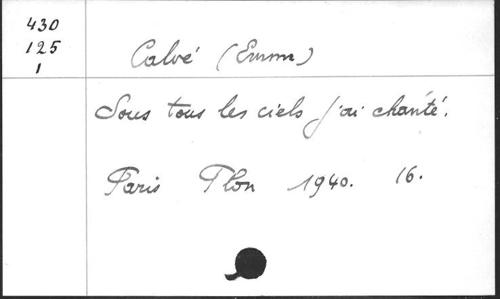 430
125
1
Calvé (Emma)
Sous tous les ciels j'ai chanté.
Paris Plon 1940. 16.